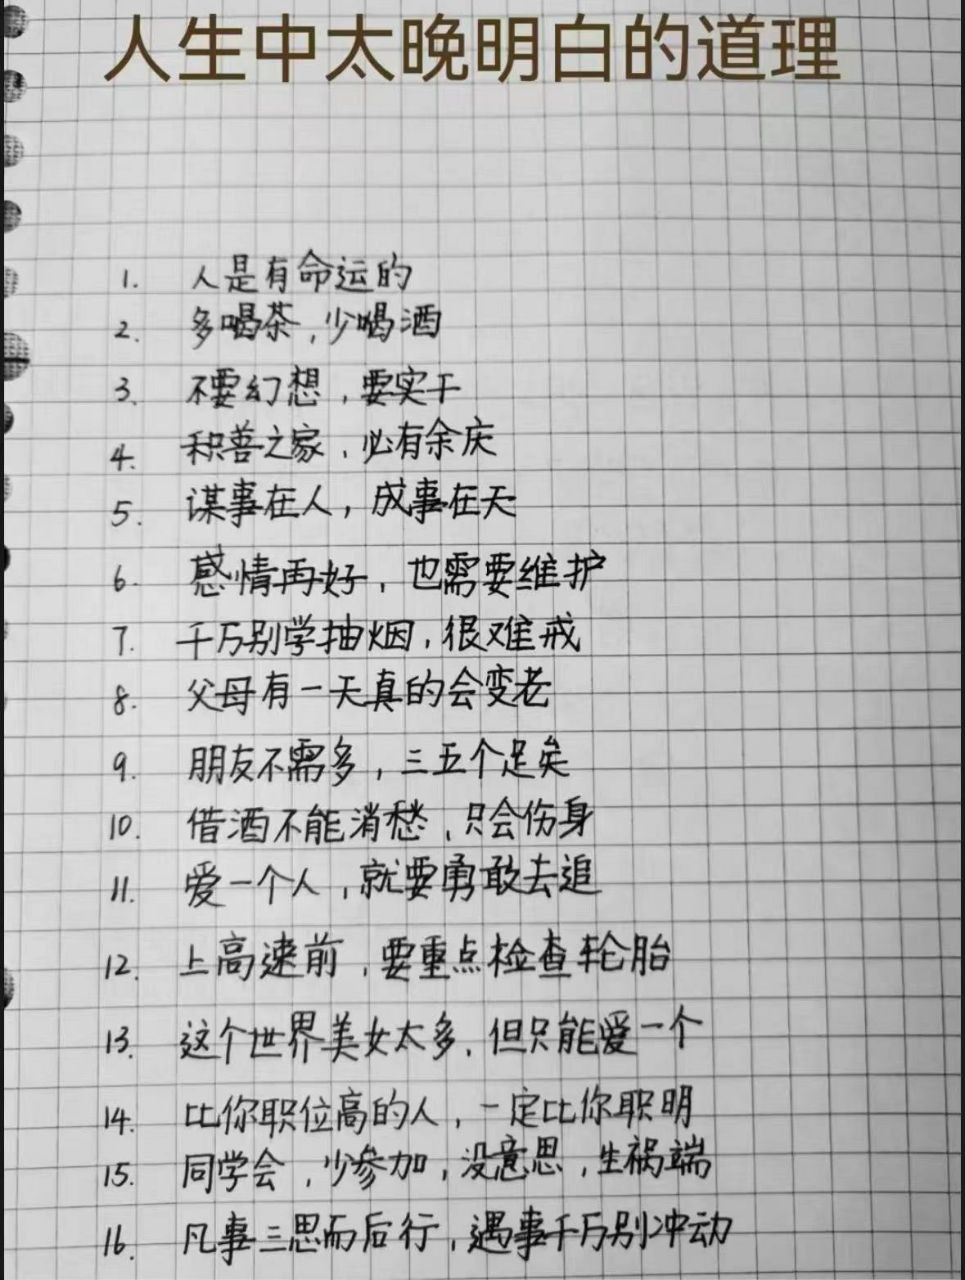 人生中太晚明白的道理
1. 人是有命运的
2. 多喝茶，少喝酒
3. 不要幻想，要实干
4. 积善之家，必有余庆
5. 谋事在人，成事在天
6. 感情再好，也需要维护
7. 千万别学抽烟，很难戒
8. 父母有一天真的会变老
9. 朋友不需多，三五个足矣
10. 借酒不能消愁，只会伤身
11. 爱一个人，就要勇敢去追
12. 上高速前，要重点检查轮胎
13. 这个世界美女太多，但只能爱一个
14. 比你职位高的人，一定比你职明
15. 同学会，少参加，没意思，生祸端
16. 凡事三思而后行，遇事千万别冲动